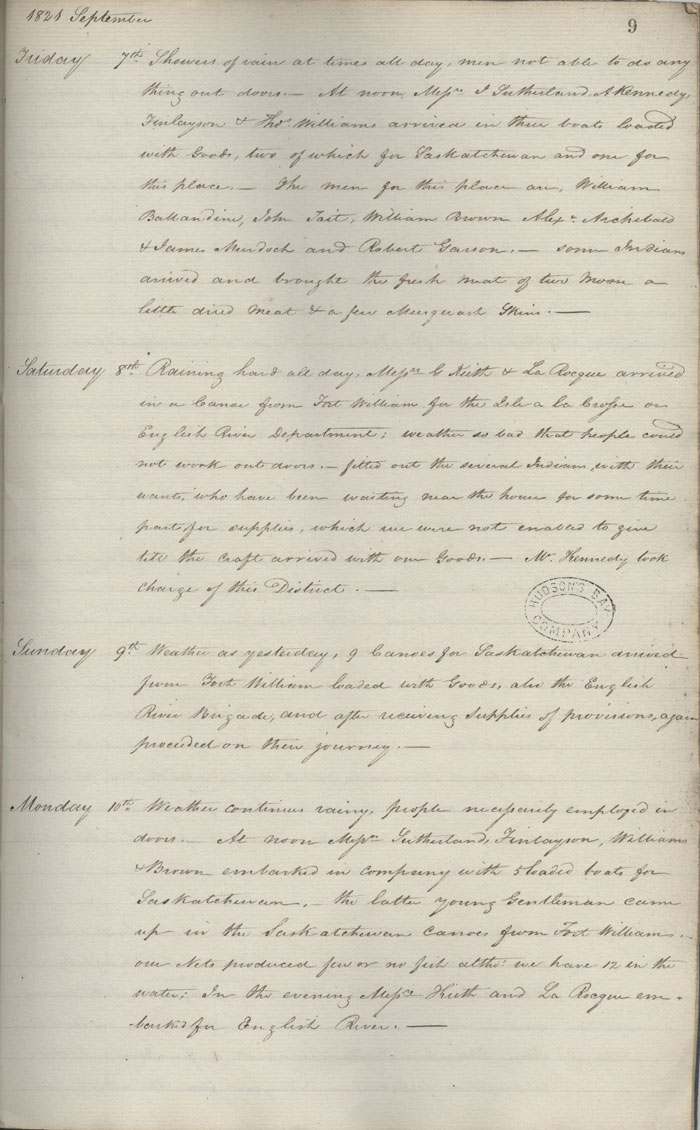 1821 September
9
Friday 7th Showers of rain at times all day, men not able to do any
thing out doors. — At noon Messrs J Sutherland, A Kennedy,
Finlayson & Thos Williams arrived in their boats loaded
with Goods, two of which for Saskatchewan and one for
this place. — The men for this place are, William
Ballandine, John Tait, William Brown Alexr Archibald
& James Murdoch and Robert Garson. — some Indians
arrived and brought the fresh meat of two Moose a
little dried meat & a few Musquash Skins. —
Saturday 8th Raining hard all day, Messrs G Keith & La Rocque arrived
in a Canoe from Fort William for the Isle a la Crosse or
English River Department; weather so bad that people could
not work out doors. — fitted out the several Indians with their
wants, who have been waiting near the house for some time
past, for supplies, which we were not enabled to give
till the craft arrived with our Goods. — Mr Kennedy took
charge of this District. —
HUDSON'S BAY COMPANY
Sunday 9th Weather as yesterday, 9 Canoes for Saskatchewan arrived
from Fort William loaded with Goods, also the English
River Brigade, and after receiving Supplies of provisions, again
proceeded on their journey. —
Monday 10th Weather continues rainy, people necessarily employed in
doors. — At noon Messrs Sutherland, Finlayson, Williams
& Brown embarked in company with 5 loaded boats for
Saskatchewan. — the latter young Gentleman came
up in the Saskatchewan Canoes from Fort William. —
our Nets produced few or no fish altho' we have 12 in the
water; In the evening Messrs Keith and La Rocque em-
-barked for English River. —